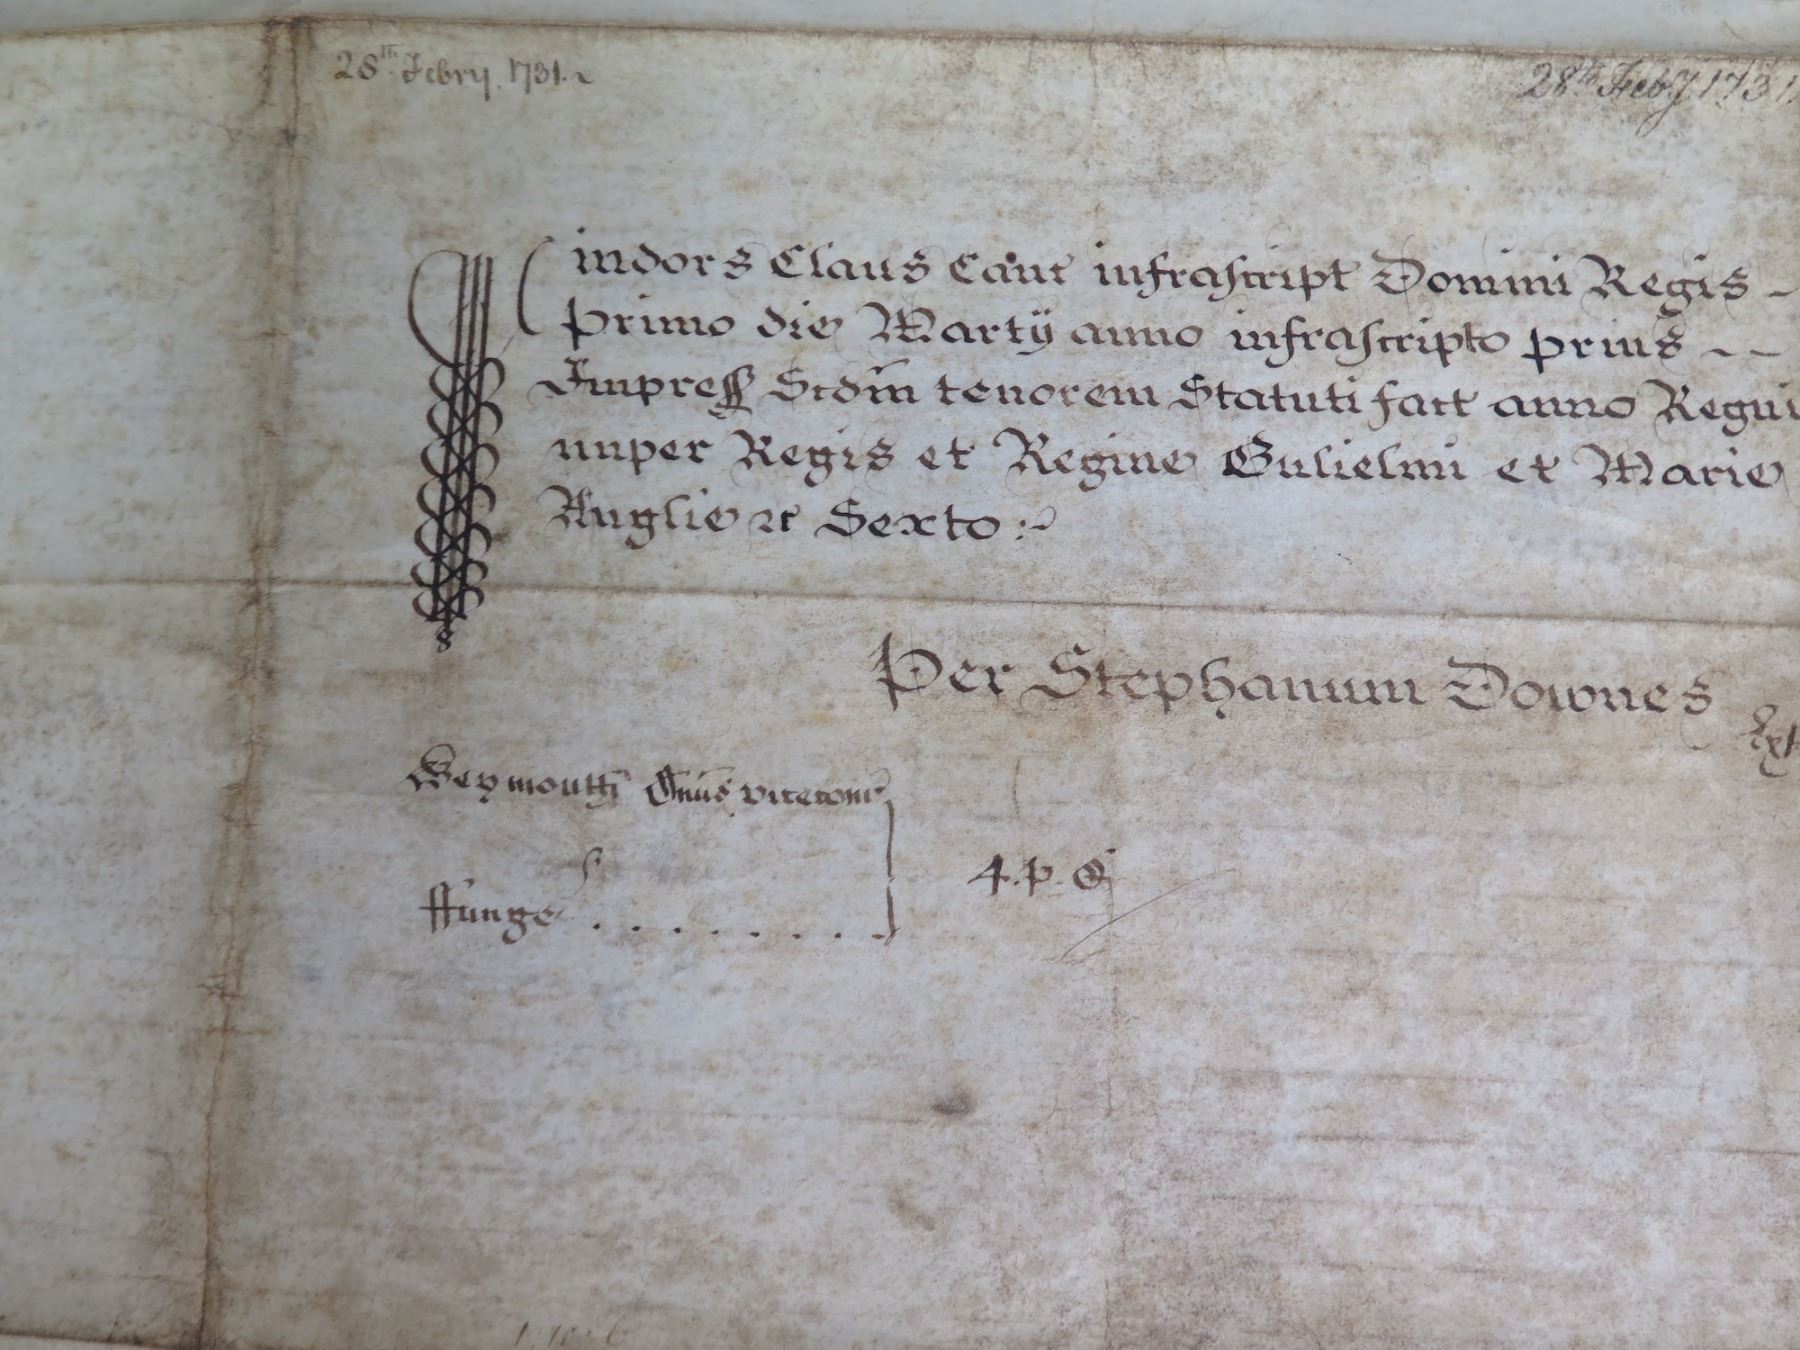 28th Febry. 1731.
28th Feby 1731
Indors Claus Canc infrascript Domini Regis
primo die Martij anno infrascripto prius
Impress Scdm tenorem Statuti fact anno Regni
nuper Regis et Regine Gulielmi et Marie
Anglie &c Sexto
Per Stephanum Downes
Weymouth
4. p.